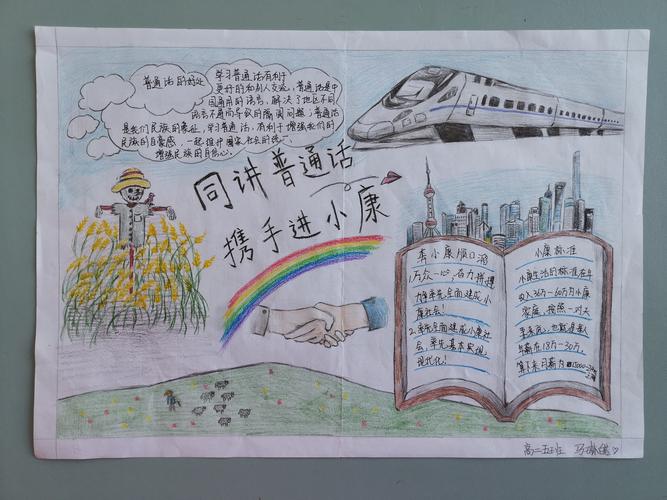 普通话的好处
学习普通话有利于
更好的和别人交流，普通话是中
国通用的语言，解决了地区不同
语言不通而导致的隔阂问题；普通话
是我们民族的象征，学习普通话，有利于增强我们的
民族的自豪感，一起维护国家、社会的统一，
增强民族的自信心。
同讲普通话
携手进小康
奔小康顺口溜
1万众一心，合力拼搏
率先全面建成小
康社会！
2.率先全面建成小康社
会，率先基本实现
现代化！
小康标准
小康生活的标准在年
收入36万-60万为小康
家庭，按照一对夫
妻来说，也就是每
年薪在18万-30万，
算下来月薪为15000-
高二五班